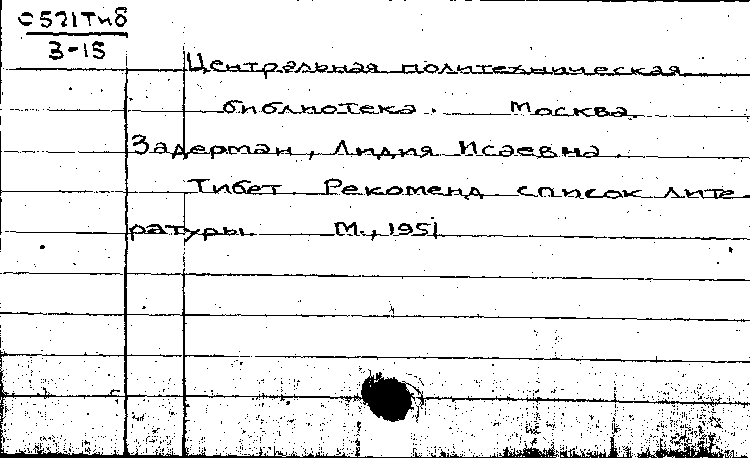 С521Тиб
З-15
Центральная политехническая
библиотека. Москва.
Задерман, Лидия Исаевна.
Тибет. Рекоменд. список лите-
ратуры. М., 1951